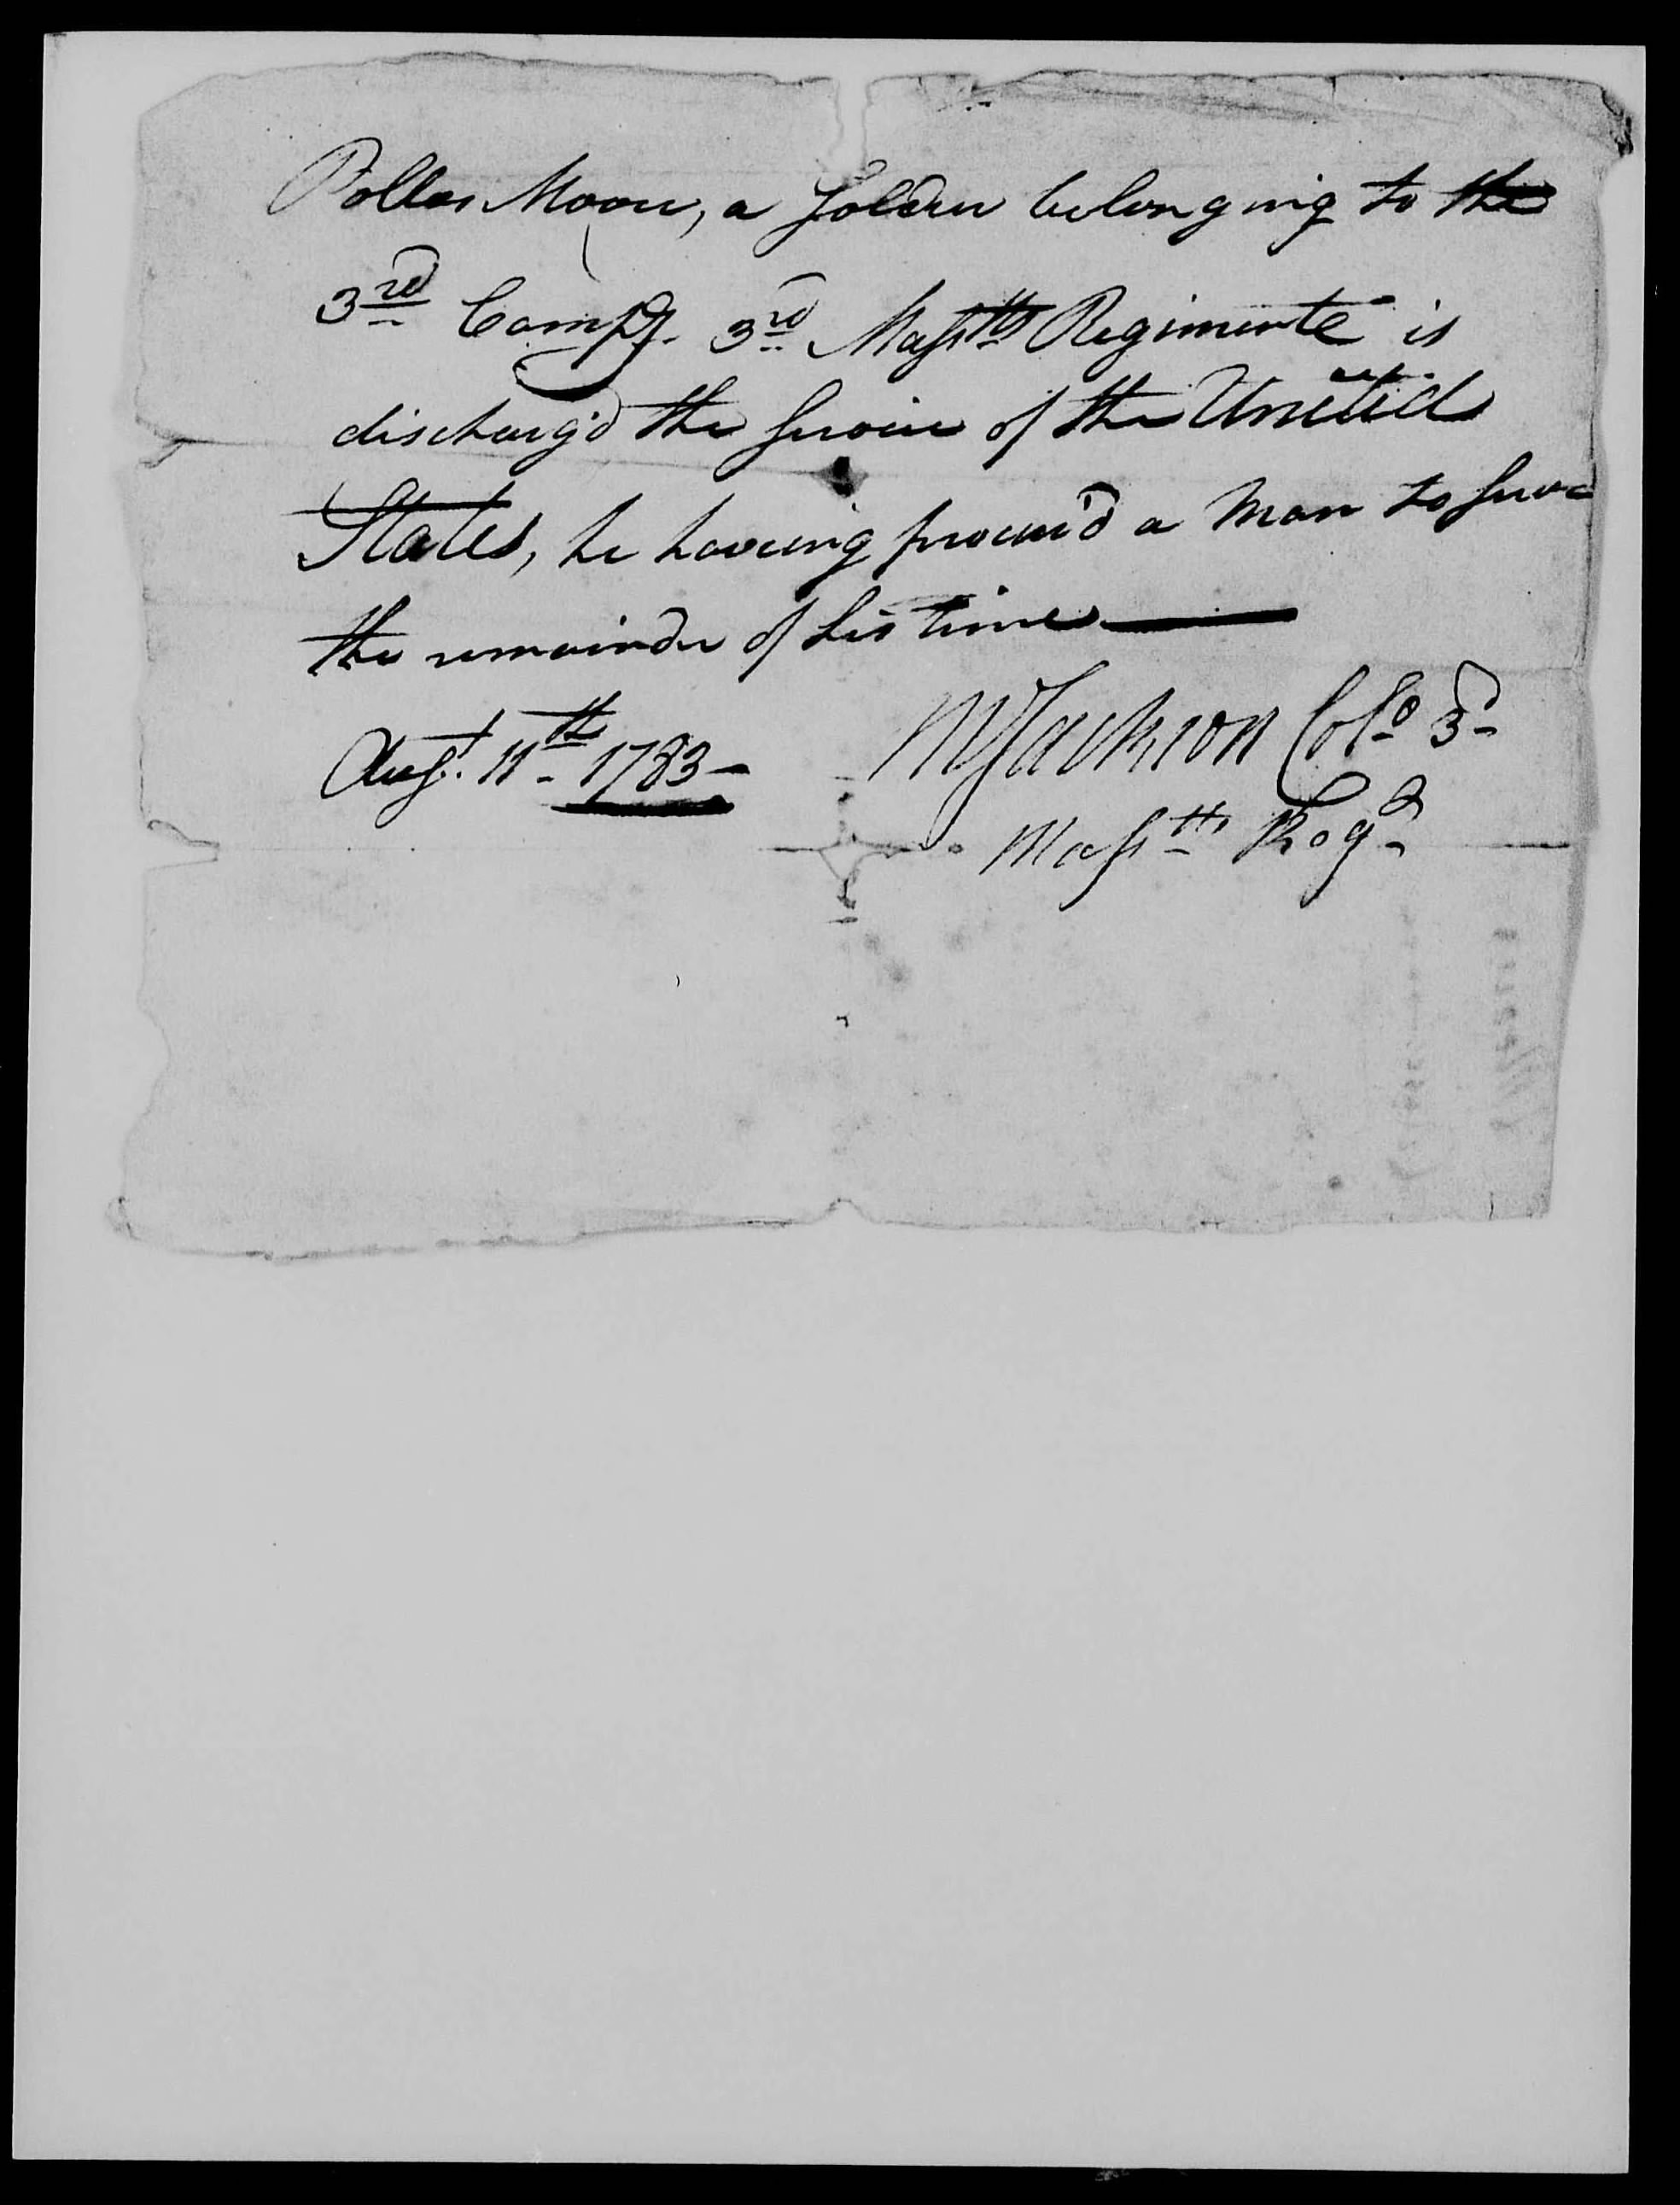 Moore, a Solder belonging to the
3rd Compy. 3rd Massts Regimente is
discharg'd the Service of the United
States, he having procur'd a Man to Serve
the remainder of his time
Augt. 11th 1783
M Jackson Colo 3d
Massts Regt